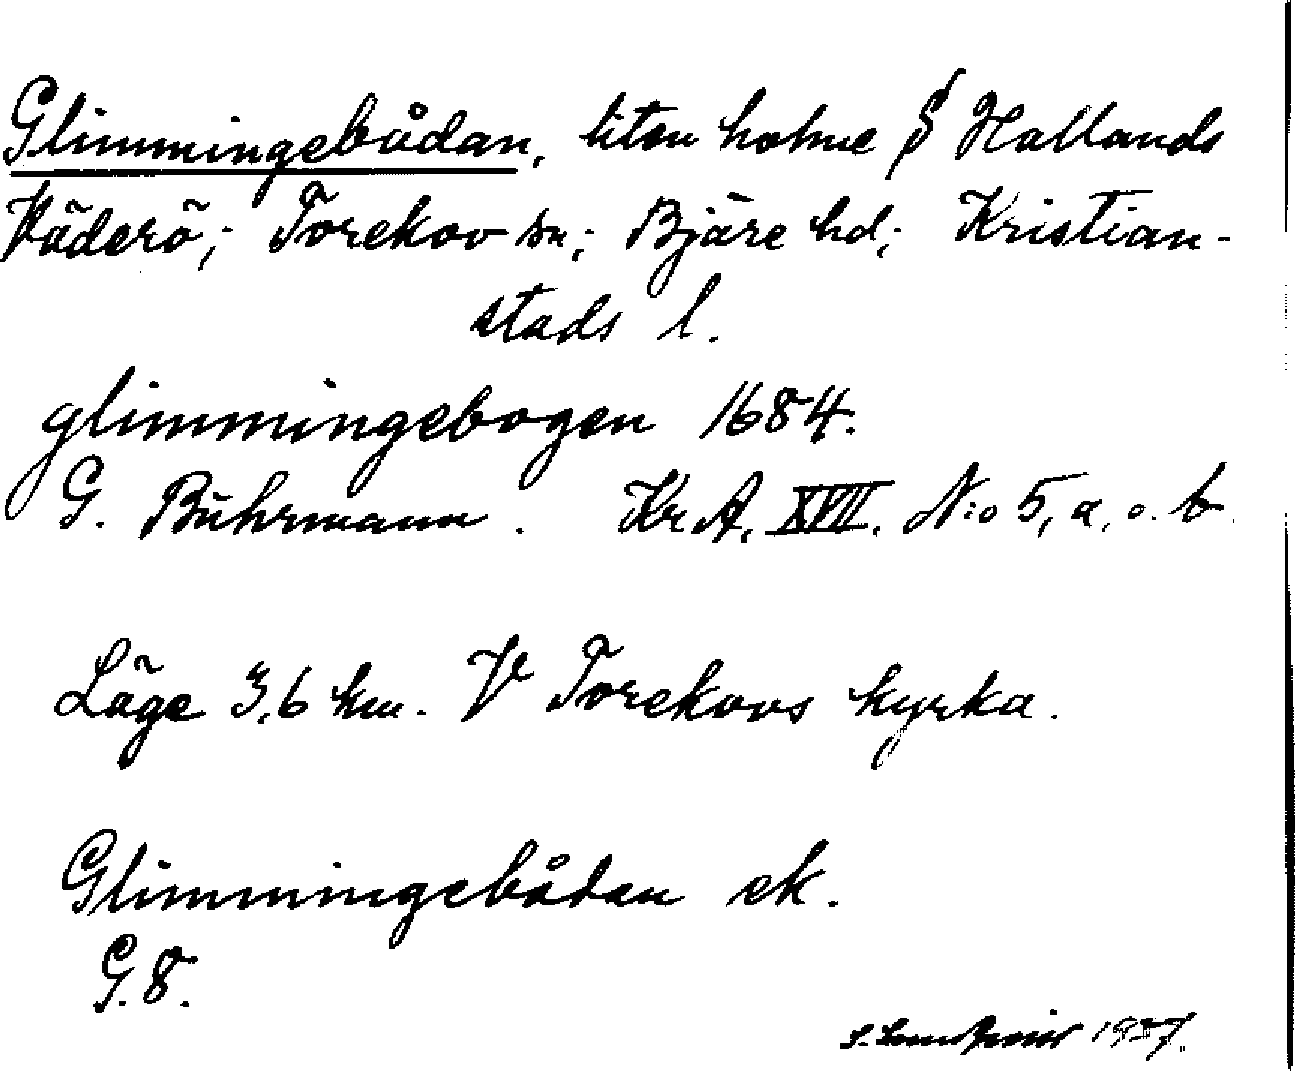 Glimmingebådan, liten holme S Hallands
Väderö; Torekov sn; Bjäre hd; Kristian-
stads l.
glimmingebogen 1684.
G. Buhrmann. Kr A. XVII. N:o 5, a. o. b.
Läge 3,6 km. V Torekovs kyrka.
Glimmingebådan ek.
G. 8.
1937.